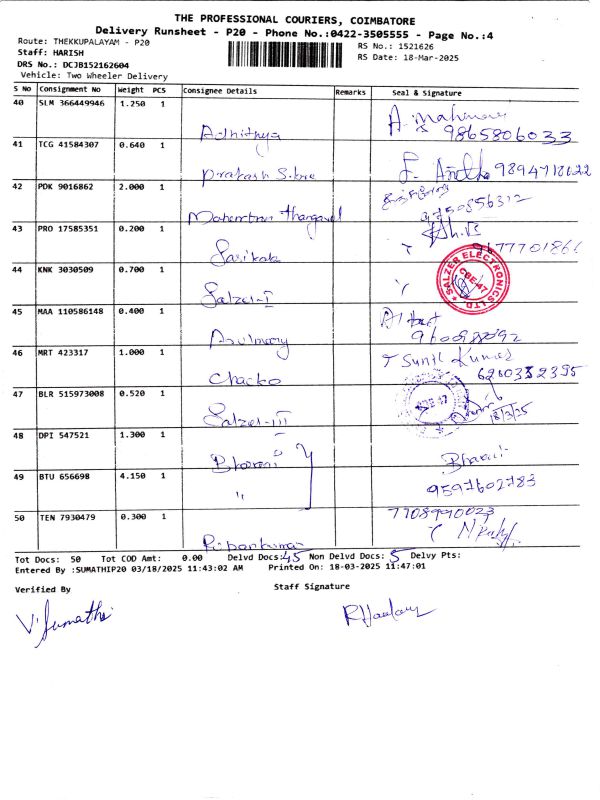 THE PROFESSIONAL COURIERS, COIMBATORE
Delivery Runsheet - P20 - Phone No.:0422-3505555 - Page No.:4
Route: THEKKUPALAYAM - P20
RS No.: 1521626
Staff: HARISH
RS Date: 18-Mar-2025
DRS No.: DCJB152162604
Vehicle: Two Wheeler Delivery
S No Consignment No Weight PCS Consignee Details Remarks Seal & Signature
40 SLM 366449946 1.250 1
Adhithya 9865806033
41 TCG 41584307 0.640 1
Prakash 9894718622
42 PDK 9016862 2.000 1
43 PRO 17585351 0.200 1
Sasikala
44 KNK 3030509 0.700 1
Salzer-I
SALZER ELECTRONICS LTD. CBE-47
45 MAA 110586148 0.400 1
Arulmary
46 MRT 423317 1.000 1
Chacko
Sunil Kumar
47 BLR 515973008 0.520 1
Salzer-III
CBE 47
18/3/25
48 DPI 547521 1.300 1
Bharani
Bharani
49 BTU 656698 4.150 1
"
9597602783
50 TEN 7930479 0.300 1
7708990023
Tot Docs: 50 Tot COD Amt: 0.00 Delvd Docs: 45 Non Delvd Docs: 5 Delvy Pts:
Entered By :SUMATHIP20 03/18/2025 11:43:02 AM Printed On: 18-03-2025 11:47:01
Verified By Staff Signature
V. Sumathi